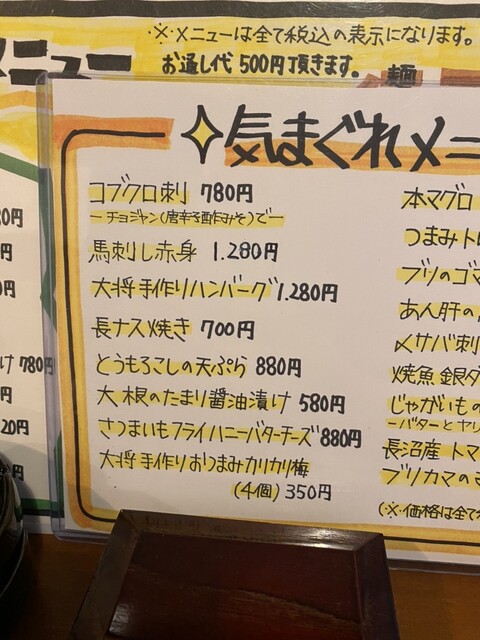 ※メニューは全て税込の表示になります。
お通し代 500円頂きます。
メニュー
麺
気まぐれメニ
コブクロ刺 780円
ーチョジャン(唐辛子酢みそ)でー
馬刺し赤身 1.280円
大将手作りハンバーグ 1.280円
長ナス焼き 700円
とうもろこしの天ぷら 880円
大根のたまり醤油漬け 580円
さつまいもフライハニーバターチーズ 880円
大将手作りおつまみカリカリ梅
(4個) 350円
本マグロ
つまみトロ
ブツのゴマ
あん肝の
〆サバ刺
焼魚 銀ダ
じゃがいもの
ーバターとヤリ
長沼産 トマ
ブリカマの
(※価格は全て
け 780円
20円